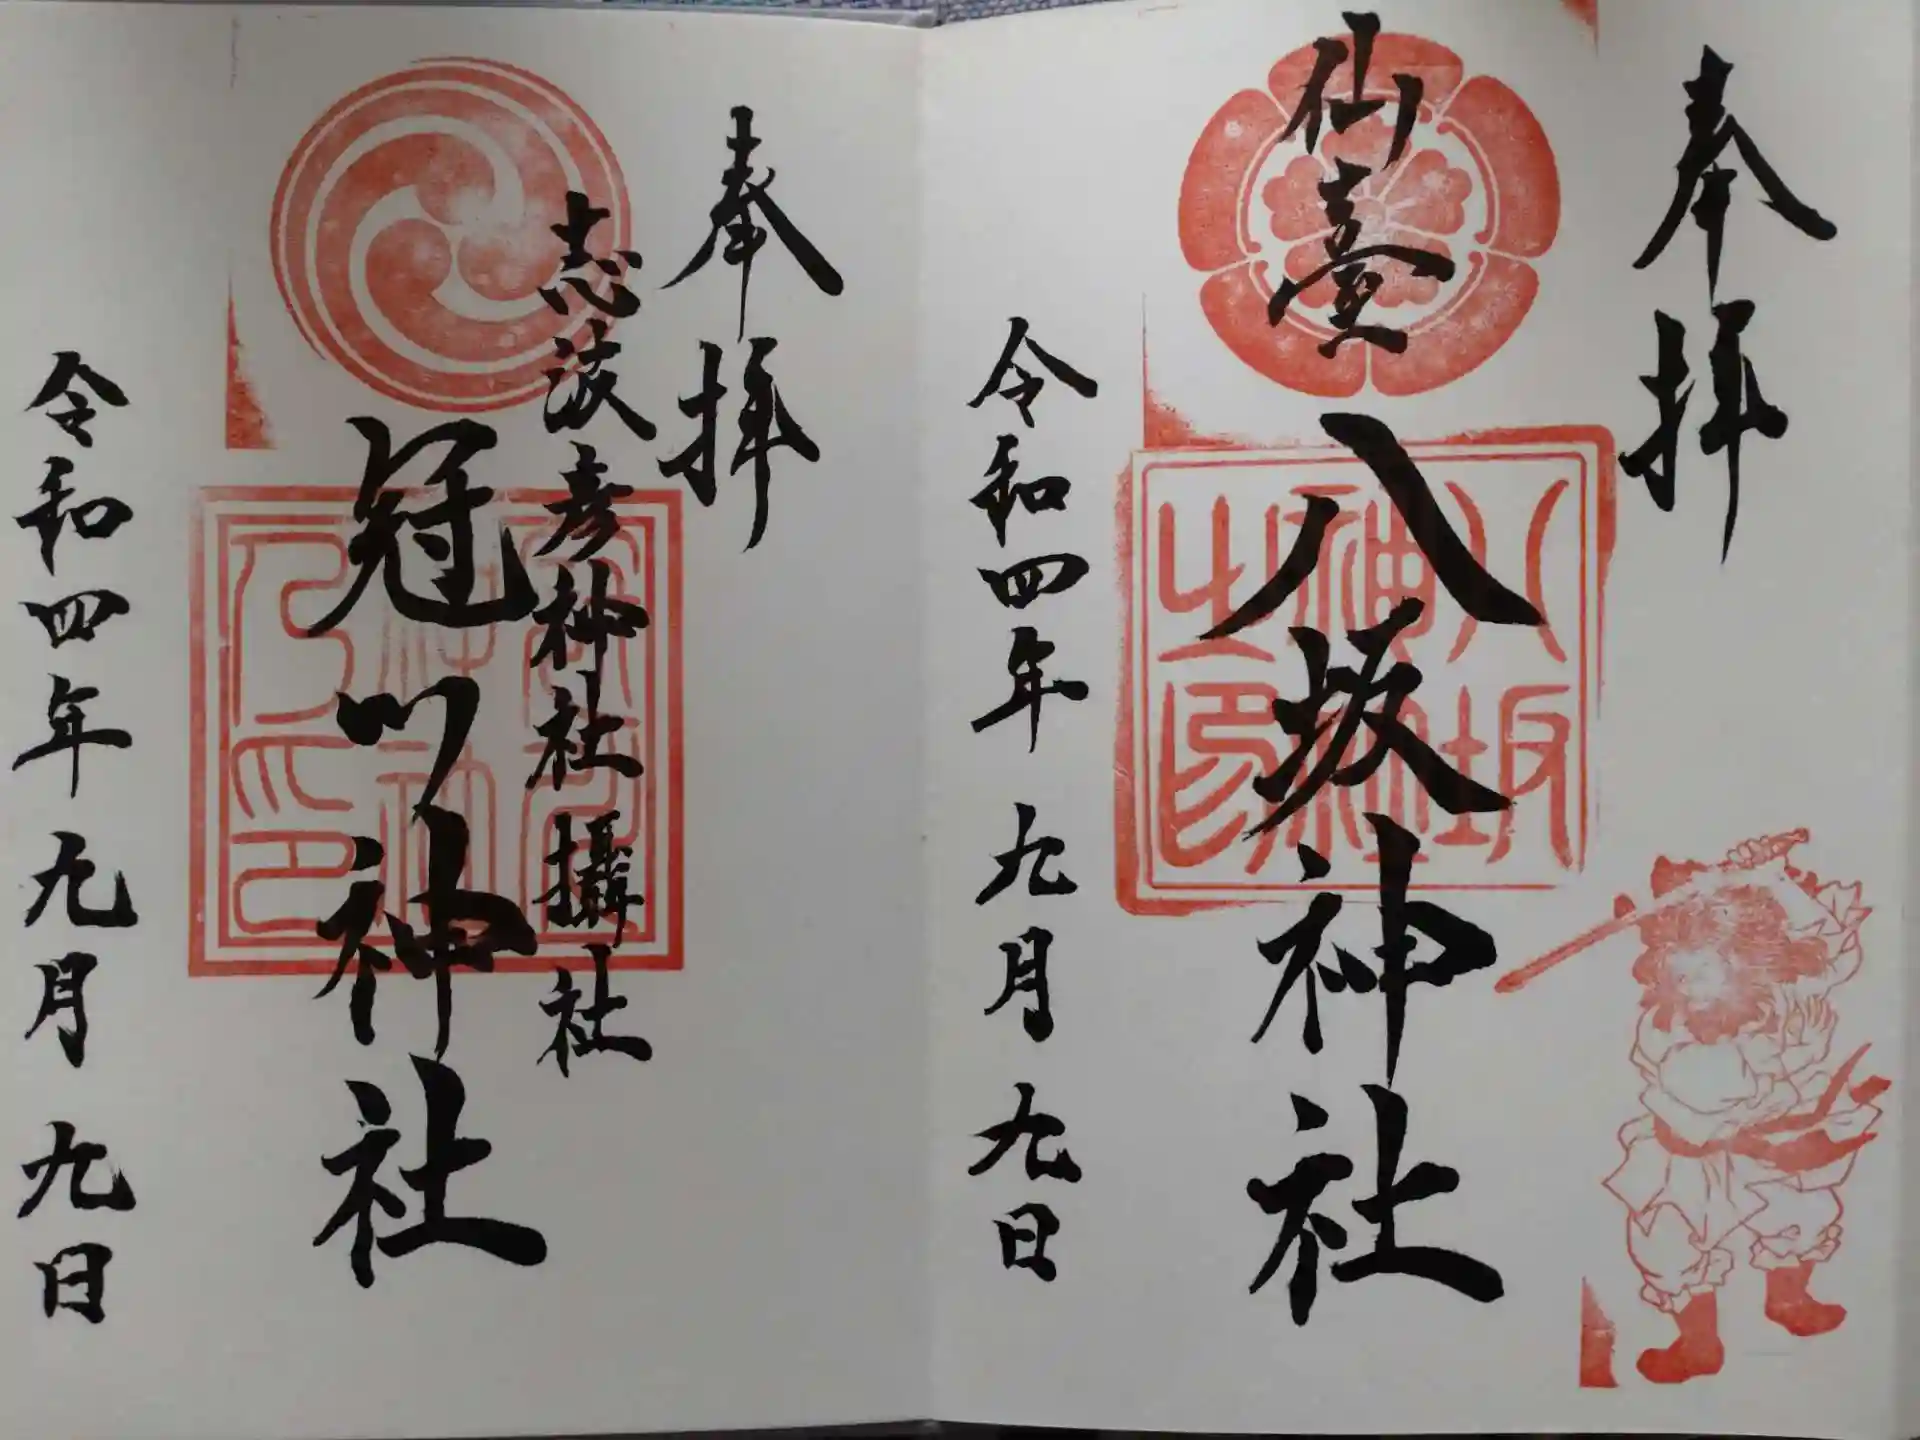 奉拝
仙臺
八坂神社
八坂
神社
之印
令和四年九月九日
奉拝
志波彦神社攝社
冠川神社
令和四年九月九日